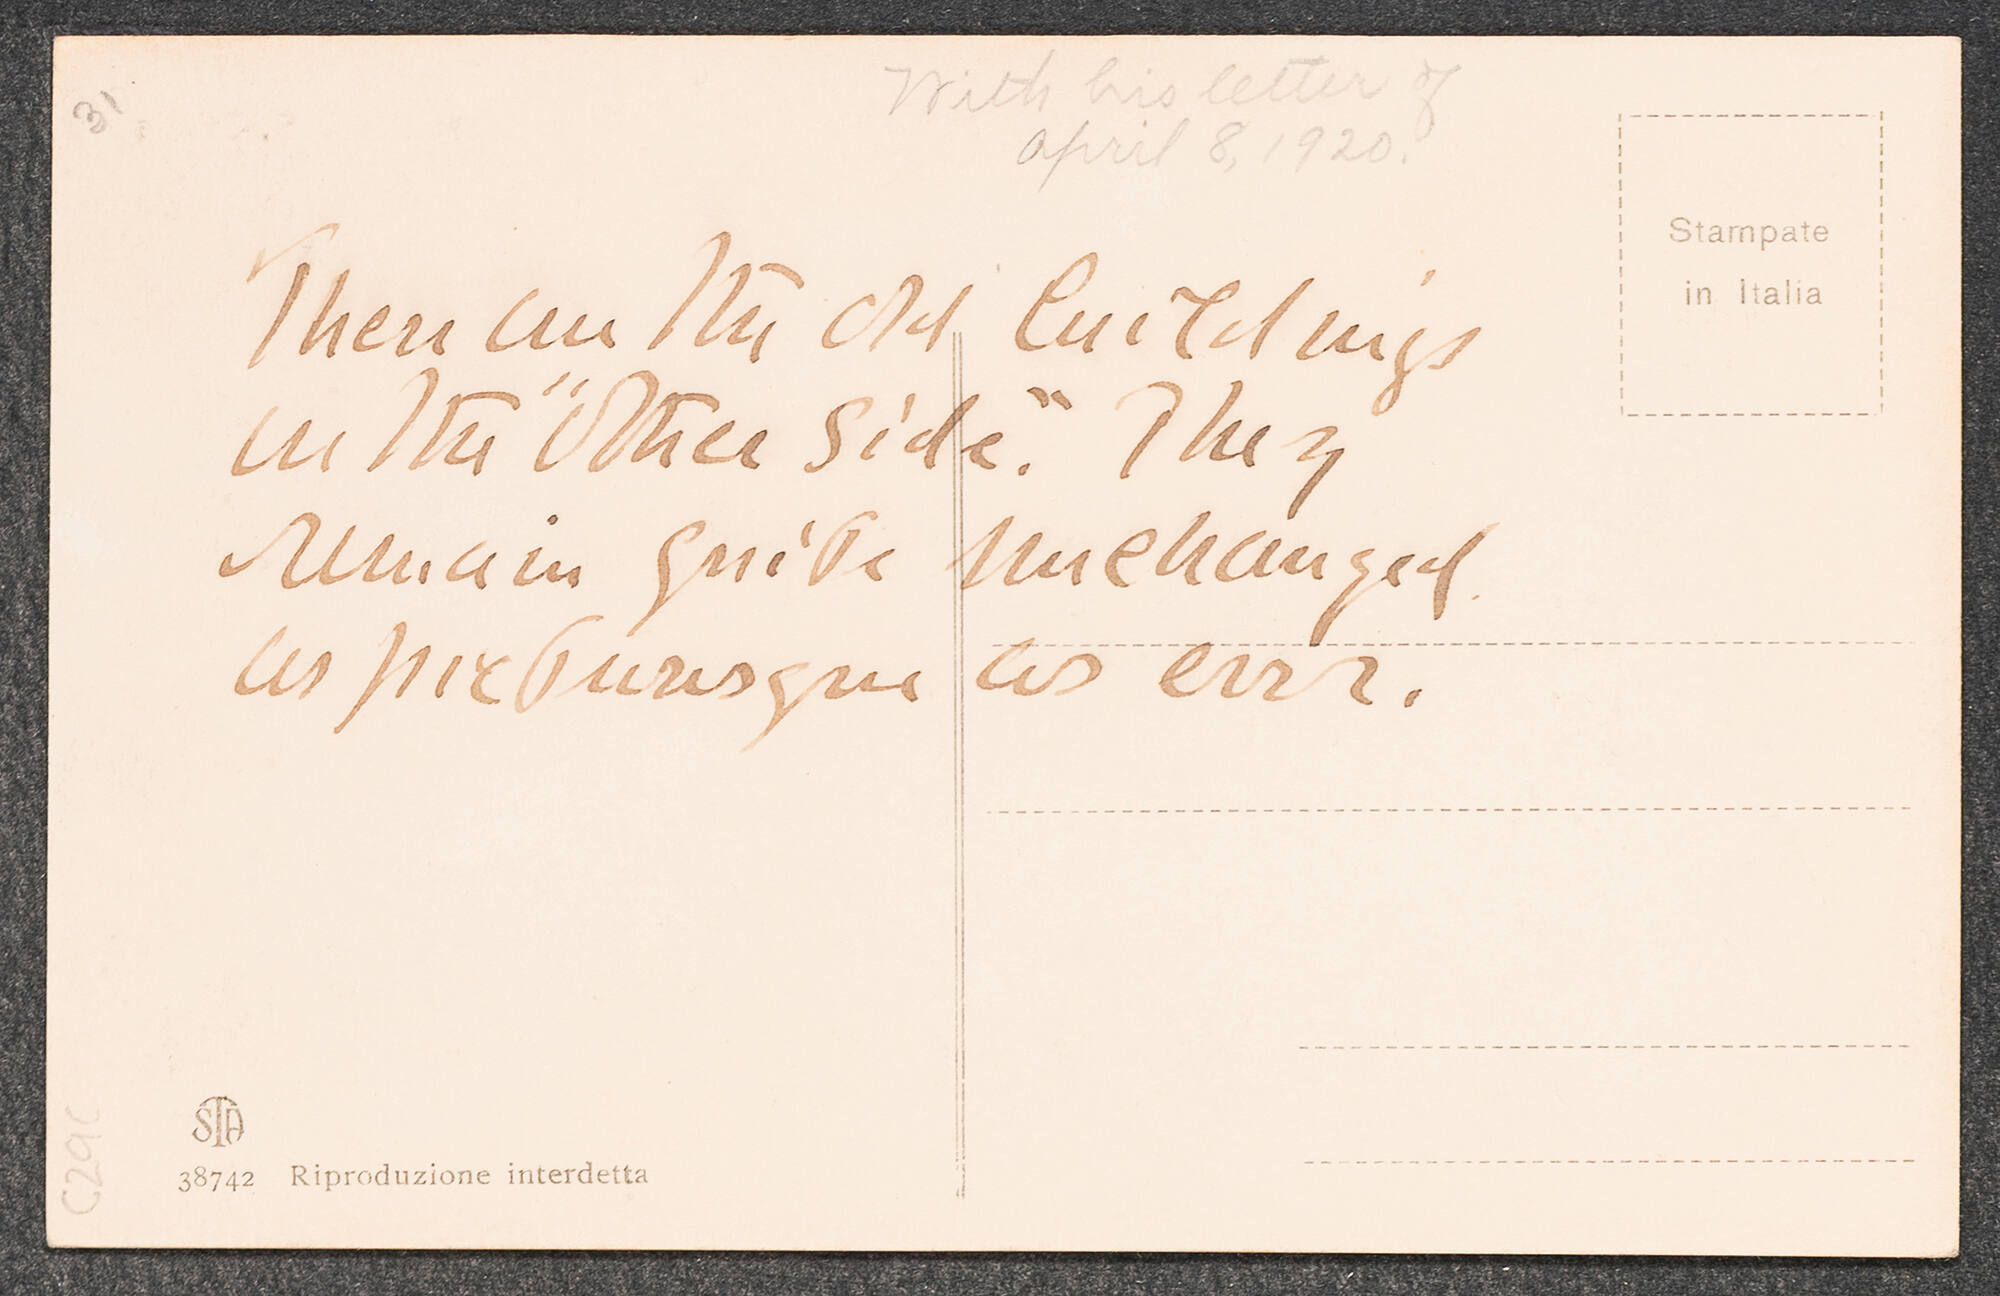 31
With his letter of
April 8, 1920.
Stampate
in Italia
These are the old buildings
on the "Other Side." They
remain quite unchanged
as picturesque as ever.
STA
38742 Riproduzione interdetta
C29C